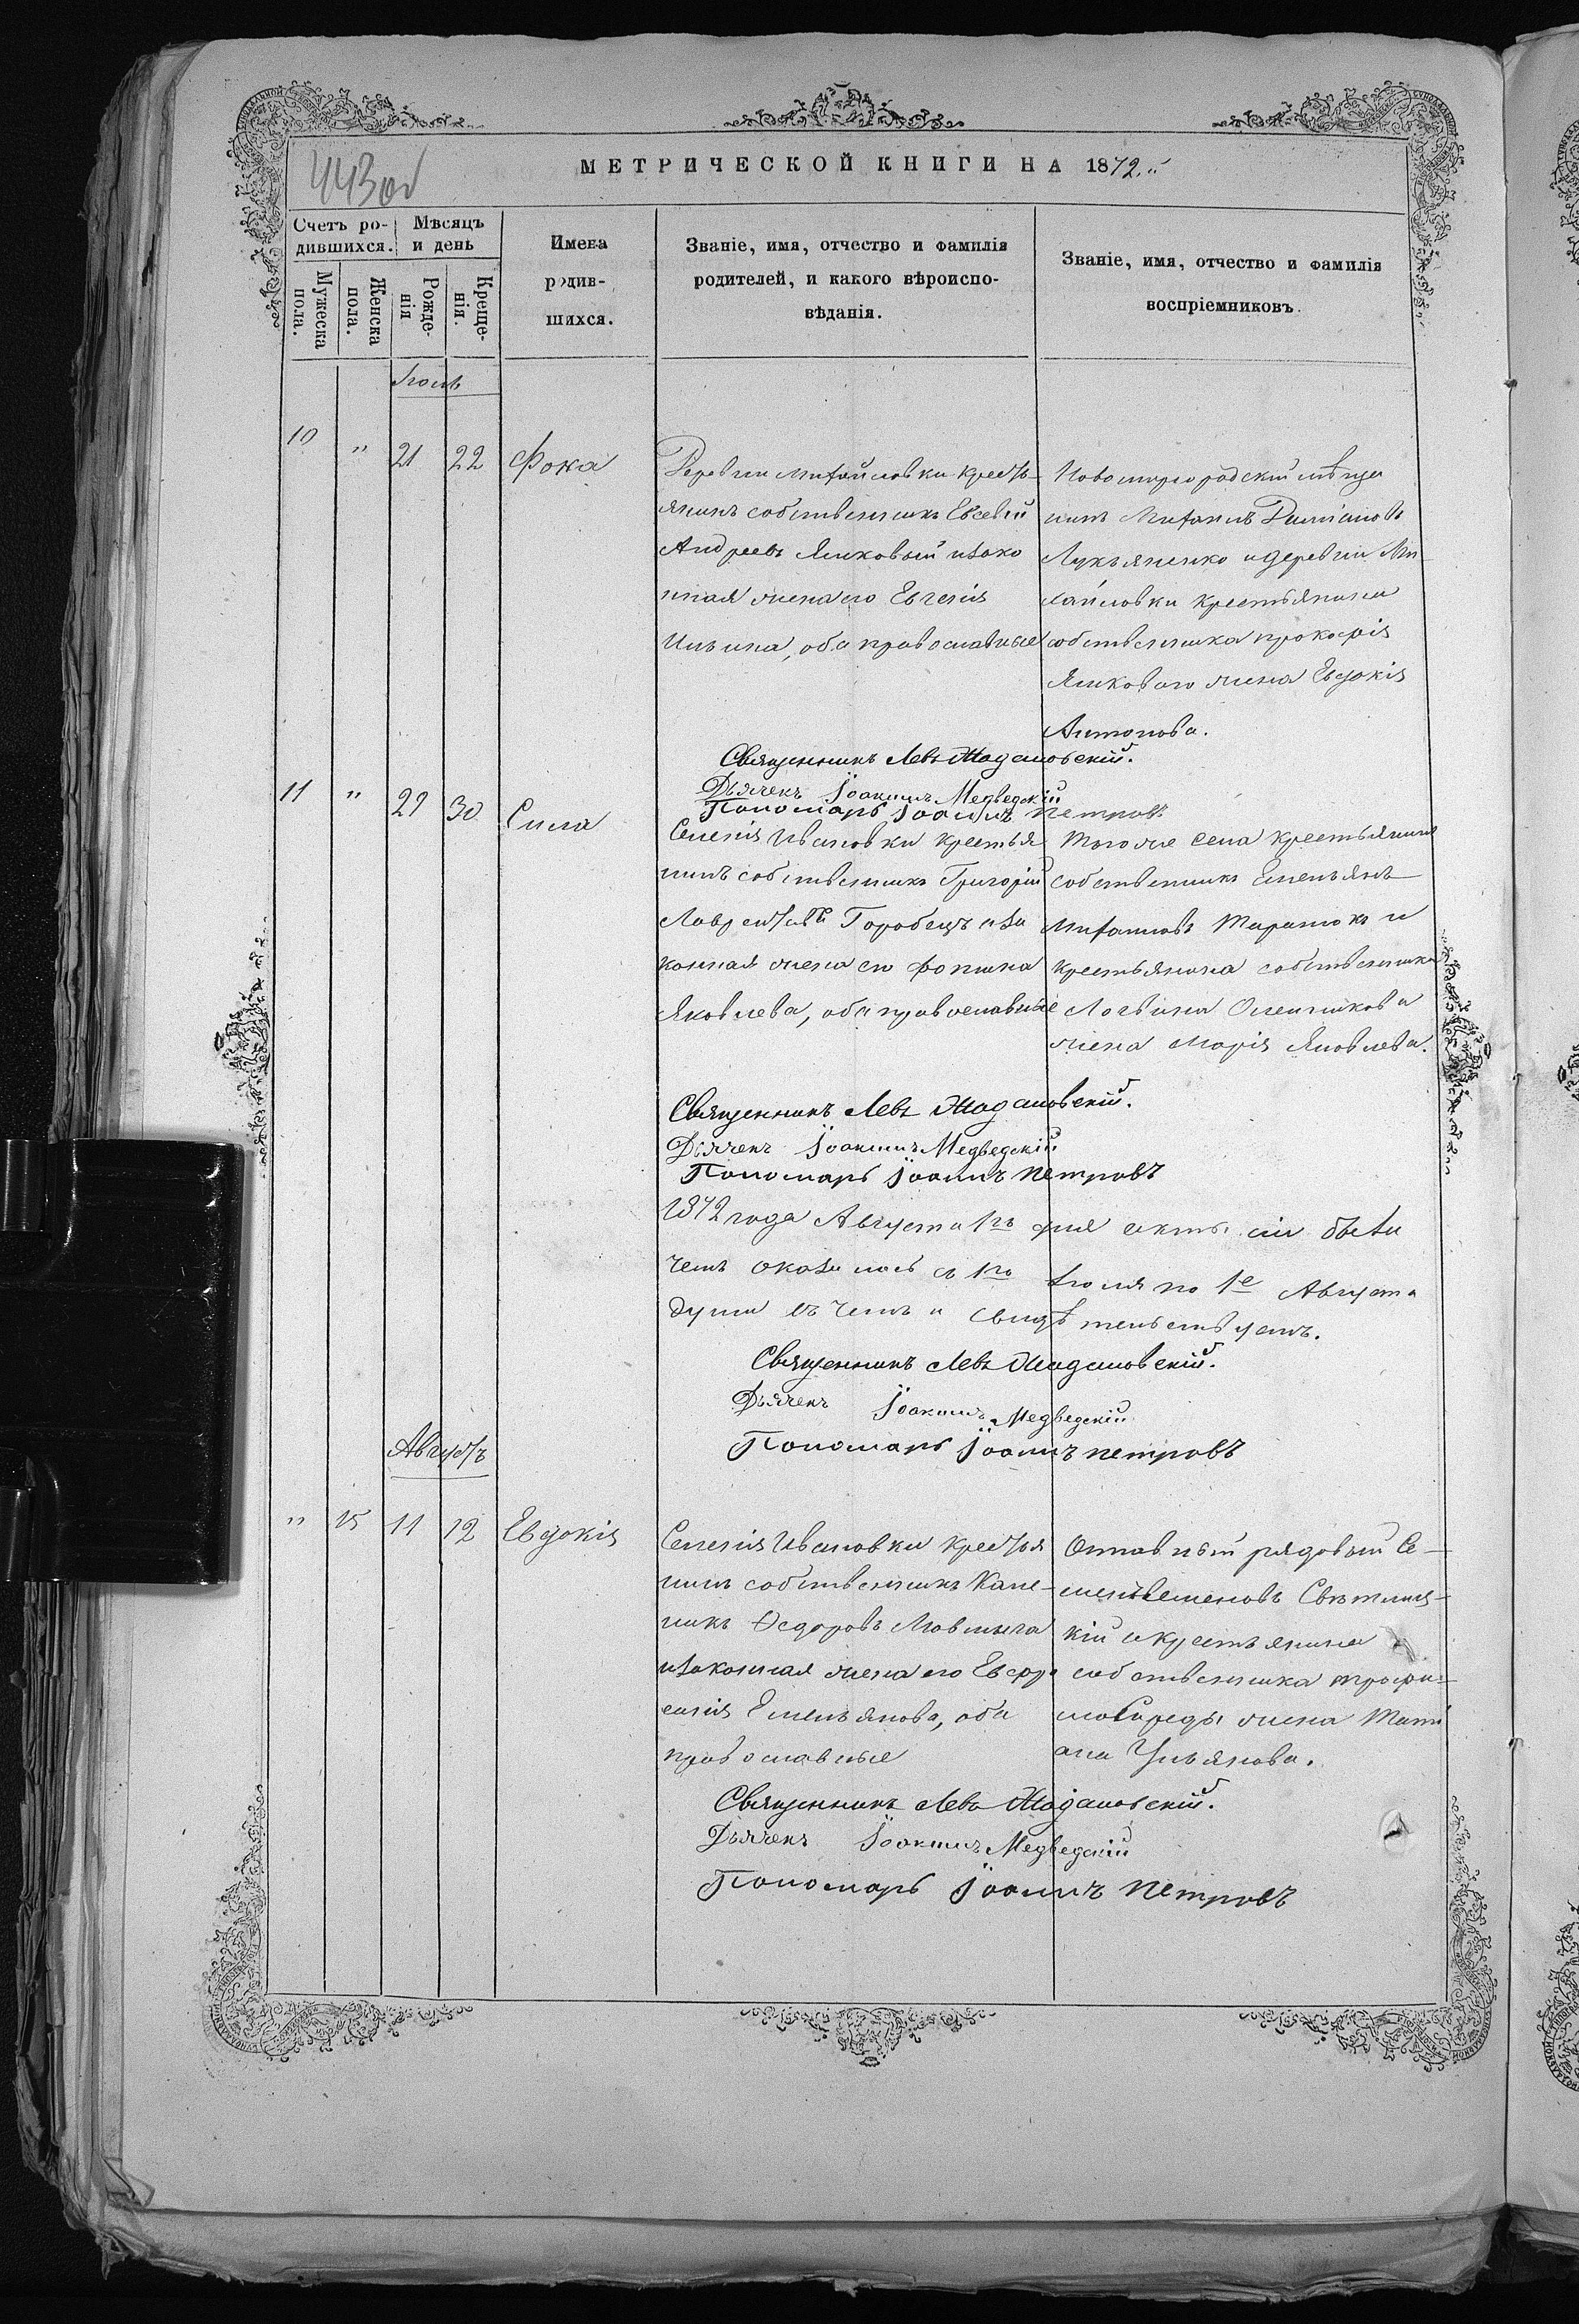 443об
МЕТРИЧЕСКОЙ КНИГИ НА 1872
Счетъ ро-
дившихся.
Мѣсяцъ
и день
Мужеска
пола.
Женска
пола.
Рожде-
нія
Креще-
нія.
Имена
родив-
шихся.
Званіе, имя, отчество и фамилія
родителей, и какого вѣроиспо-
вѣданія.
Званіе, имя, отчество и фамилія
воспріемниковъ.
Іюль
10 " 21 22 Фока
Деревни Михайловки кресть-
янинъ собственникъ Евсевій
Андреевъ Янковый и зако
нная жена его Евгенія
Ильина, оба православные
Новомиргородскій мѣща
нинъ Михаилъ Даміановъ
Лукьяненко и деревни Ми-
хайловки крестьянина
собственника Прокофія
Янковаго жена Евдокія
Антонова.
Священникъ Левъ
Дьячекъ Іоакимъ Медведскій
Пономарь Іоаннъ Петровъ
11 " 29 30 Сила
Селенія Ивановки крестья
нинъ собственникъ Григорій
Горобецъ и за
конная жена его Фотина
Яковлева, оба православные
Того же села крестьянинъ
собственникъ Емельянъ
Михаиловъ Таранюкъ и
крестьянина собственника
Логвина
жена Марія Яковлева.
Священникъ Левъ
Дьячекъ Іоакимъ Медведскій
Пономарь Іоаннъ Петровъ
1872 года Августа 1го дня
чемъ оказалось съ 1го Іюля по 1е Августа
въ чемъ и свидѣтельствуемъ.
Священникъ Левъ
Дьячекъ Іоакимъ Медведскій
Пономарь Іоаннъ Петровъ
Августъ
" 15 11 12 Евдокія
Селенія Ивановки крестья
нинъ собственникъ Кале-
никъ Ѳедоровъ
и законная жена его Евфро
синія Емельянова, оба
православные
Отставный рядовый Се-
менъ Семеновъ
кій и крестьянина
собственника Трофи-
ма Середы жена Тати
ана Ульянова.
Священникъ Левъ
Дьячекъ Іоакимъ Медведскій
Пономарь Іоаннъ Петровъ